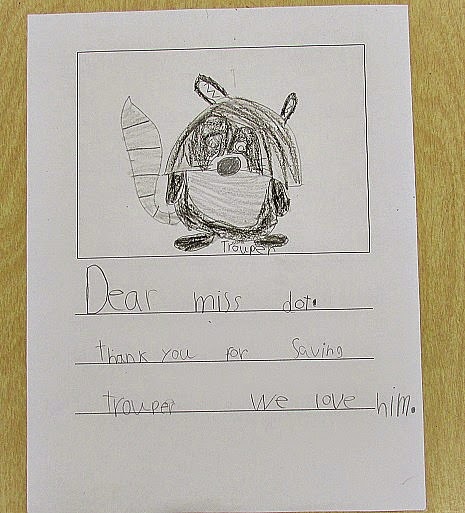 Trouper
Dear miss dot.
thank you for saving
trouper we love him.